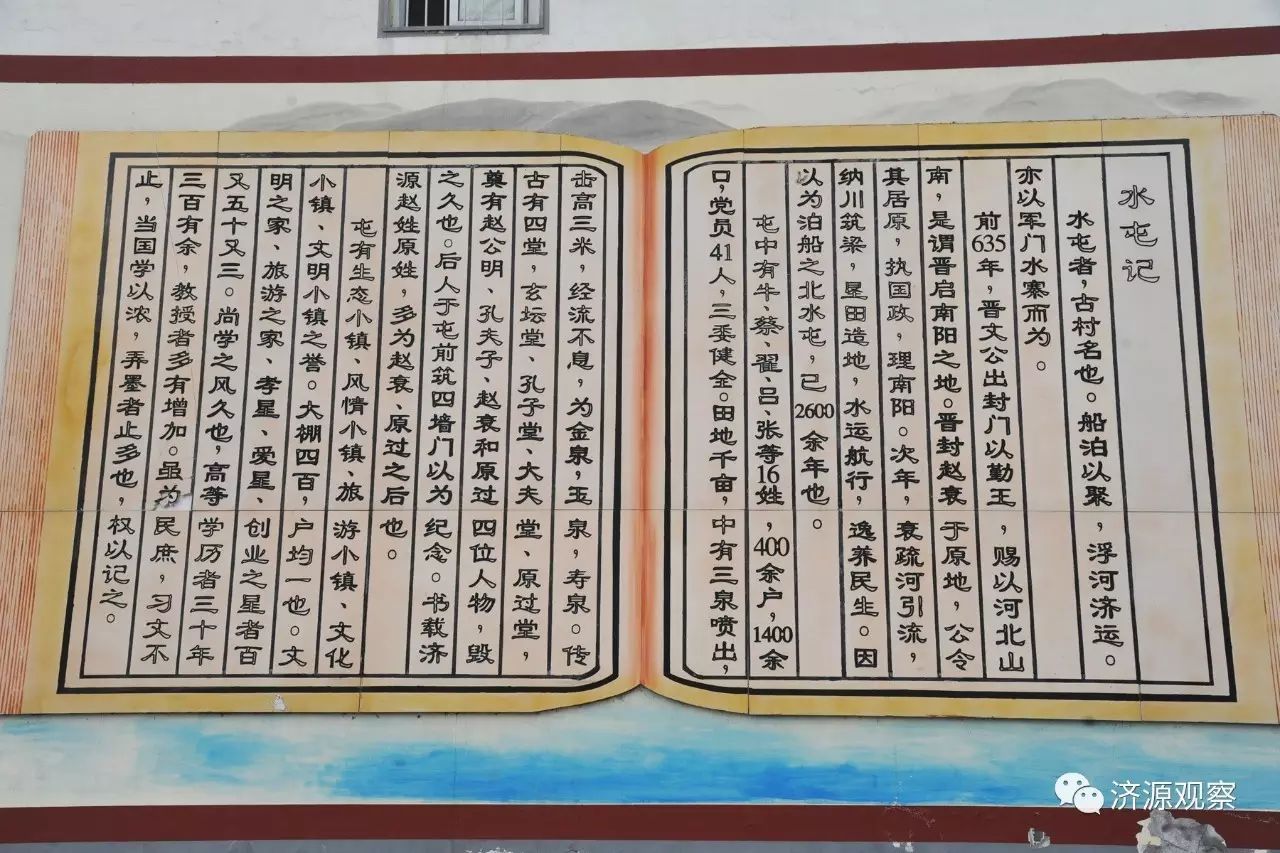 水屯记
水屯者，古村名也。船泊以聚，浮河济运。
亦以军门水寨而为。
前635年，晋文公出封门以勤王，赐以河北山
南，是谓晋启南阳之地。晋封赵衰于原地，公令
其居原，执国政，理南阳。次年，衰疏河引流，
纳川筑梁，垦田造地，水运航行，逸养民生。因
以为泊船之北水屯，已2600余年也。
屯中有牛、蔡、翟、吕、张等16姓，400余户，1400余
口，党员41人，三委健全。田地千亩，中有三泉喷出，
击高三米，经流不息，为金泉，玉泉，寿泉。传
古有四堂，玄坛堂、孔子堂、大夫堂、原过堂，
奠有赵公明、孔夫子、赵衰和原过四位人物，毁
之久也。后人于屯前筑四墙门以为纪念。书载济
源赵姓原姓，多为赵衰、原过之后也。
屯有生态小镇、风情小镇、旅游小镇、文化
小镇、文明小镇之誉。大棚四百，户均一也。文
明之家、旅游之家、孝星、爱星、创业之星者百
又五十又三。尚学之风久也，高等学历者三十年
三百有余，教授者多有增加。虽为民庶，习文不
止，当国学以浓，弄墨者止多也，权以记之。
济源观察